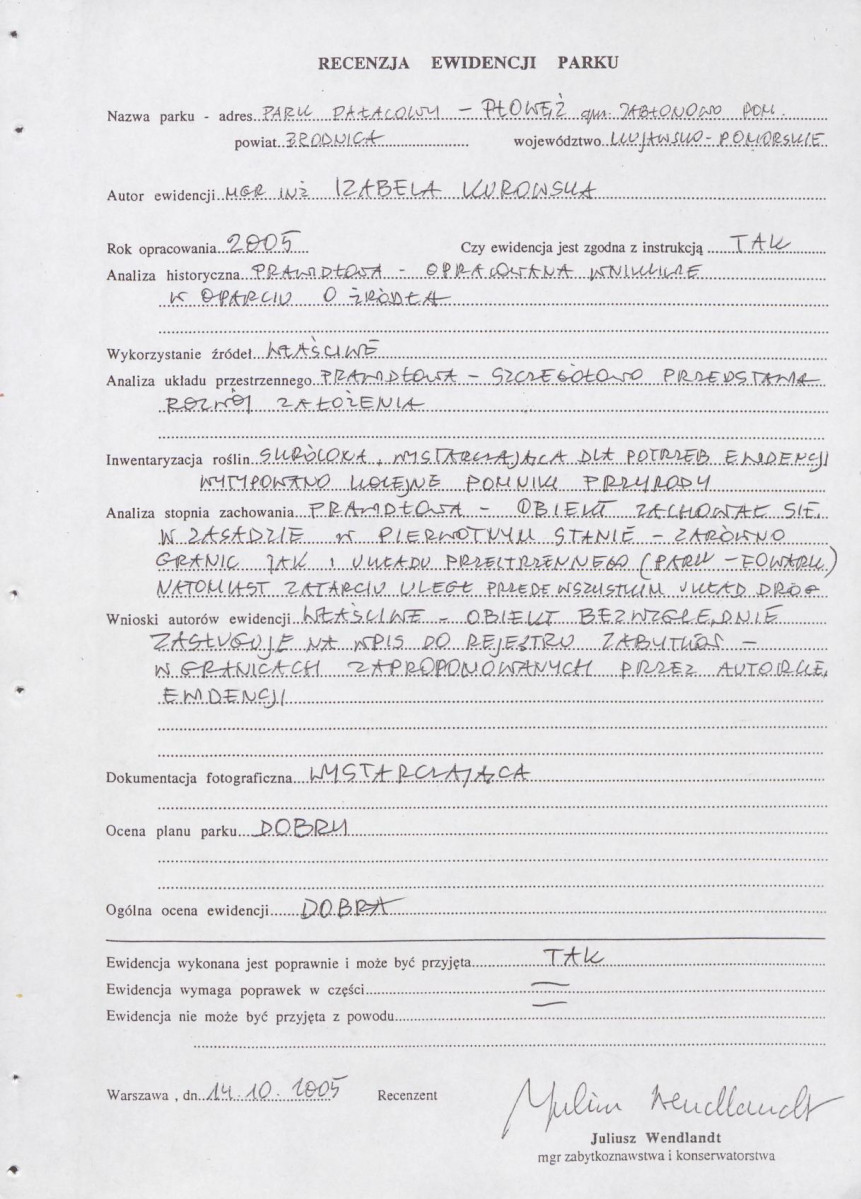 RECENZJA EWIDENCJI PARKU
Nazwa parku - adres PARK PAŁACOWY - PŁOWĘŻ gm. JABŁONOWO POM.
powiat BRODNICA województwo KUJAWSKO-POMORSKIE
Autor ewidencji MGR INŻ IZABELA KUROWSKA
Rok opracowania 2005 Czy ewidencja jest zgodna z instrukcją TAK
Analiza historyczna PRAWIDŁOWA - OPRACOWANA WNIKLIWIE
W OPARCIU O ŹRÓDŁA
Wykorzystanie źródeł WŁAŚCIWE
Analiza układu przestrzennego PRAWIDŁOWA - SZCZEGÓŁOWO PRZEDSTAWIA
ROZWÓJ ZAŁOŻENIA
Inwentaryzacja roślin SKRÓCONA, WYSTARCZAJĄCA DLA POTRZEB EWIDENCJI
WYTYPOWANO KOLEJNE POMNIKI PRZYRODY
Analiza stopnia zachowania PRAWIDŁOWA - OBIEKT ZACHOWAŁ SIĘ
W ZASADZIE W PIERWOTNYM STANIE - ZARÓWNO
GRANIC JAK I UKŁADU PRZESTRZENNEGO (PARK - FOLWARK)
NATOMIAST ZATARCIU ULEGŁ PRZEDE WSZYSTKIM UKŁAD DRÓG
Wnioski autorów ewidencji WŁAŚCIWE - OBIEKT BEZWZGLĘDNIE
ZASŁUGUJE NA WPIS DO REJESTRU ZABYTKÓW -
W GRANICACH ZAPROPONOWANYCH PRZEZ AUTORKĘ
EWIDENCJI
Dokumentacja fotograficzna WYSTARCZAJĄCA
Ocena planu parku DOBRY
Ogólna ocena ewidencji DOBRA
Ewidencja wykonana jest poprawnie i może być przyjęta TAK
Ewidencja wymaga poprawek w części —
Ewidencja nie może być przyjęta z powodu —
Warszawa , dn. 14.10.2005 Recenzent Juliusz Wendlandt
Juliusz Wendlandt
mgr zabytkoznawstwa i konserwatorstwa